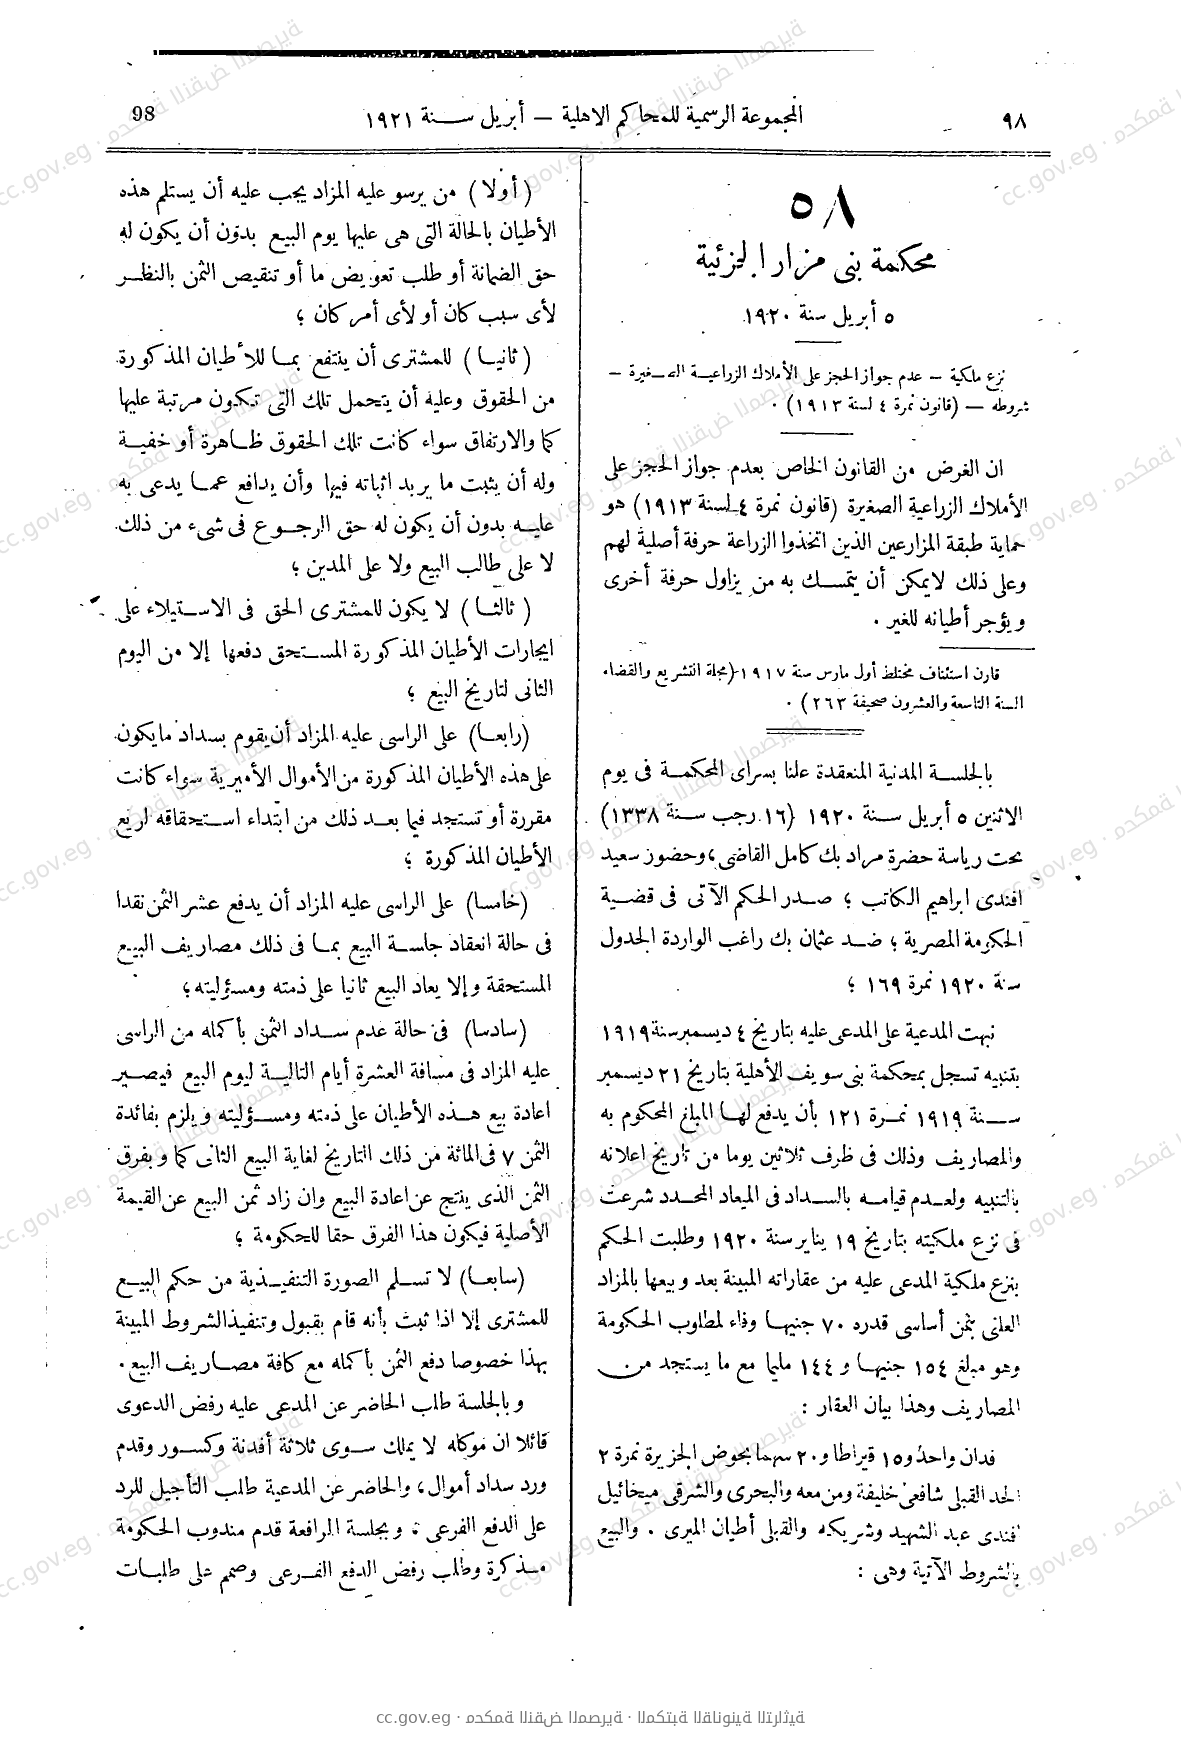 ٩٨
المجموعة الرسمية للمحاكم الاهلية — أبريل سنة ١٩٢١
98
٥٨
محكمة بنى مزار الجزئية
٥ أبريل سنة ١٩٢٠
نزع ملكية — عدم جواز الحجز على الأملاك الزراعية الصغيرة —
شروطه — (قانون نمرة ٤ لسنة ١٩١٣) .
ان الغرض من القانون الخاص بعدم جواز الحجز على
الأملاك الزراعية الصغيرة (قانون نمرة ٤ لسنة ١٩١٣) هو
حماية طبقة المزارعين الذين اتخذوا الزراعة حرفة أصلية لهم
وعلى ذلك لا يمكن أن يتمسك به من يزاول حرفة أخرى
ويؤجر أطيانه للغير .
قارن استئناف مختلط أول مارس سنة ١٩١٧ (مجلة التشريع والقضاء
السنة التاسعة والعشرون صحيفة ٢٦٣) .
بالجلسة المدنية المنعقدة علنا بسراى المحكمة فى يوم
الاثنين ٥ أبريل سنة ١٩٢٠ (١٦ رجب سنة ١٣٣٨)
تحت رياسة حضرة مراد بك كامل القاضى ؛ وحضور سعيد
افندى ابراهيم الكاتب ؛ صدر الحكم الآتى فى قضية
الحكومة المصرية ؛ ضد عثمان بك راغب الواردة الجدول
سنة ١٩٢٠ نمرة ١٦٩ ؛
نبهت المدعية على المدعى عليه بتاريخ ٤ ديسمبر سنة ١٩١٩
بتنبيه تسجل بمحكمة بنى سويف الأهلية بتاريخ ٢١ ديسمبر
سنة ١٩١٩ نمرة ١٢١ بأن يدفع لها المبلغ المحكوم به
والمصاريف وذلك فى ظرف ثلاثين يوما من تاريخ اعلانه
بالتنبيه ولعدم قيامه بالسداد فى الميعاد المحدد شرعت
فى نزع ملكيته بتاريخ ١٩ يناير سنة ١٩٢٠ وطلبت الحكم
بنزع ملكية المدعى عليه من عقاراته المبينة بعد وبيعها بالمزاد
العلنى بثمن أساسى قدره ٧٠ جنيها وفاء لمطلوب الحكومة
وهو مبلغ ١٥٤ جنيها و ١٤٤ مليما مع ما يستجد من
المصاريف وهذا بيان العقار :
فدان واحد و١٥ قيراطا و٢٠ سهما بحوض الجزيرة نمرة ٢
الحد القبلى شافعى خليفة ومن معه والبحرى والشرقى ميخائيل
افندى عبد الشهيد وشريكه والقبلى أطيان الميرى . والبيع
بالشروط الآتية وهى :
(أولا) من يرسو عليه المزاد يجب عليه أن يستلم هذه
الأطيان بالحالة التى هى عليها يوم البيع بدون أن يكون له
حق الضمانة أو طلب تعويض ما أو تنقيص الثمن بالنظر
لأى سبب كان أو لأى أمر كان ؛
(ثانيا) للمشترى أن ينتفع بما للأطيان المذكورة
من الحقوق وعليه أن يتحمل تلك التى تكون مرتبة عليها
كما والارتفاق سواء كانت تلك الحقوق ظاهرة أو خفية
وله أن يثبت ما يريد اثباته فيها وأن يدافع عما يدعى به
عليه بدون أن يكون له حق الرجوع فى شىء من ذلك
لا على طالب البيع ولا على المدين ؛
(ثالثا) لا يكون للمشترى الحق فى الاستيلاء على
ايجارات الأطيان المذكورة المستحق دفعها إلا من اليوم
الثانى لتاريخ البيع ؛
(رابعا) على الراسى عليه المزاد أن يقوم بسداد ما يكون
على هذه الأطيان المذكورة من الأموال الأميرية سواء كانت
مقررة أو تستجد فيما بعد ذلك من ابتداء استحقاقه لريع
الأطيان المذكورة ؛
(خامسا) على الراسى عليه المزاد أن يدفع عشر الثمن نقدا
فى حالة انعقاد جلسة البيع بما فى ذلك مصاريف البيع
المستحقة وإلا يعاد البيع ثانيا على ذمته ومسؤليته ؛
(سادسا) فى حالة عدم سداد الثمن بأكمله من الراسى
عليه المزاد فى مسافة العشرة أيام التالية ليوم البيع فيصير
اعادة بيع هذه الأطيان على ذمته ومسؤليته ويلزم بفائدة
الثمن ٧ فى المائة من ذلك التاريخ لغاية البيع الثانى كما وبفرق
الثمن الذى ينتج عن اعادة البيع وان زاد ثمن البيع عن القيمة
الأصلية فيكون هذا الفرق حقا للحكومة ؛
(سابعا) لا تسلم الصورة التنفيذية من حكم البيع
للمشترى إلا اذا ثبت بأنه قام بقبول وتنفيذ الشروط المبينة
بهذا خصوصا دفع الثمن بأكمله مع كافة مصاريف البيع .
وبالجلسة طلب الحاضر عن المدعى عليه رفض الدعوى
قائلا ان موكله لا يملك سوى ثلاثة أفدنة وكسور وقدم
ورد سداد أموال ؛ والحاضر عن المدعية طلب التأجيل للرد
على الدفع الفرعى ؛ وبجلسة المرافعة قدم مندوب الحكومة
مذكرة وطلب رفض الدفع الفرعى وصمم على طلبات
cc.gov.eg · محكمة النقض المصرية · المكتبة القانونية التراثية